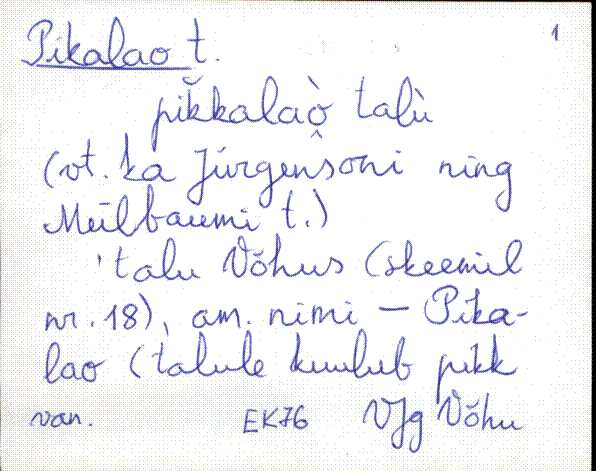 1
Pikalao t.
pikkalaò̭ talù
(vt. ka Jürgensoni ning
Meilbaumi t.)
'talu Võhus (skeemil
nr. 18), am. nimi – Pika-
lao (talule kuulub pikk
van. EK76 VJg Võhu